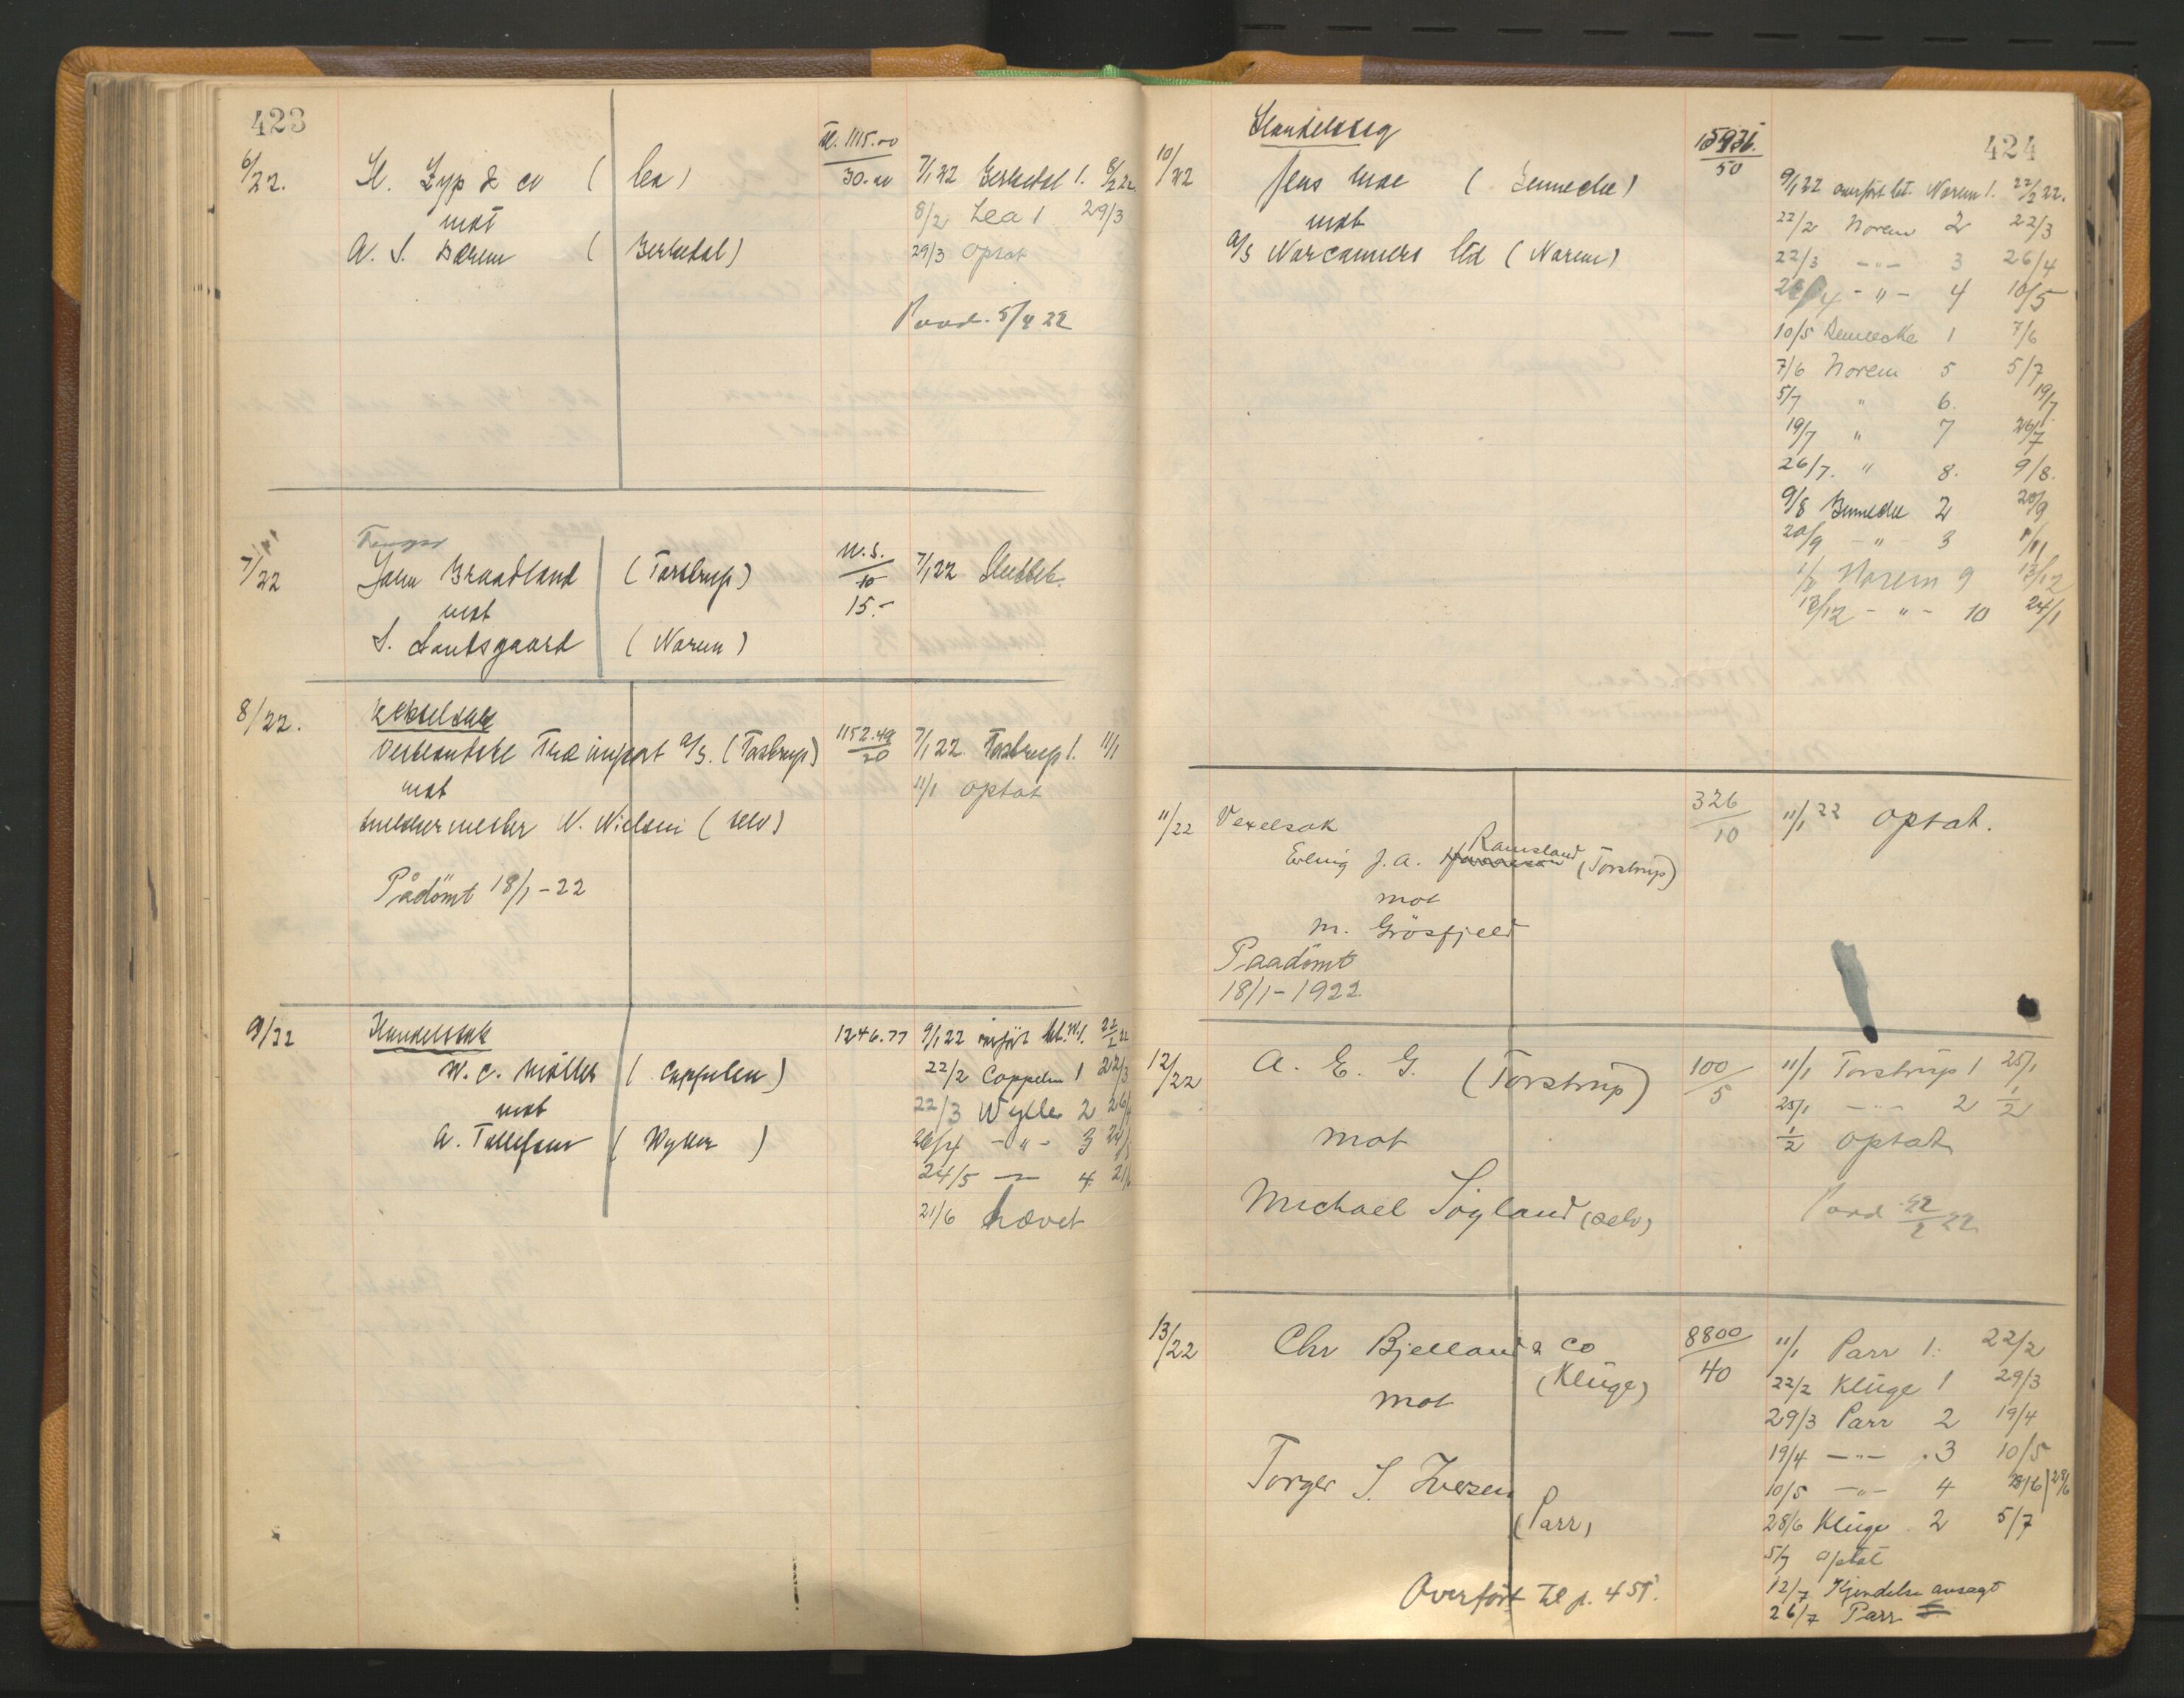 423
6/22. H. Zyp & co ( Lea )
kr. 1115.00
30.00
7/1 22 Berkedal 1. 8/2 22
mot
8/2 Lea 1 29/3
A. S. Bærem ( Berkedal )
29/3 optat
Paad. 5/4 22
7/22 John Braadland (Torstrup)
mot
S. Lantsgaard ( Norem )
N.S.
10
15.-
7/1 22
8/22. Vekselsak
Vestlandske Træimport A/S. (Torstrup)
1152.49
20
7/1 22 Torstrup 1. 11/1
mot
11/1 optat
N. Nielsen ( selv )
Pådömt 18/1 - 22
9/22 Handelssak
1246.77
9/1 22
W. C. Möller ( Cappelen )
22/2 Cappelen 1 22/3
mot
22/3 Wyller 2 26/4
A. Tollefsen ( Wyller )
26/4 - " - 3 24/5
24/5 - " - 4 21/6
21/6 hævet
424
10/22 Handelssag
Jens Moe ( Bennecke )
mot
A/S Norcanners Ltd ( Norem )
50
9/1 22 Norem 1. 22/2 22.
22/2 Norem 2 22/3
22/3 - " - 3 26/4
26/4 - " - 4 10/5
10/5 Bennecke 1 7/6
7/6 Norem 5 5/7
5/7 " 6. 19/7
19/7 " 7 26/7
26/7. " 8. 9/8.
9/8 Bennecke 2 20/9
20/9 - " - 3 1/11
1/11 Norem 9 13/12
13/12 - " - 10 24/1
11/22 Vexelsak
326
10
11/1 22 optat.
Erling J. A. Ramsland (Torstrup)
mot
M. Grösfjeld
Paadömt
18/1 - 1922
12/22 A. E. G. (Torstrup)
100
5
11/1 Torstrup 1 25/1
25/1 - " - 2 1/2
mot
1/2 optat
Michael Söyland (selv)
Paad 22/2 22
13/22 Chr Bjelland & Co
(Kluge)
8800
40
11/1 Parr 1. 22/2
22/2 Kluge 1 29/3
mot
29/3 Parr 2 19/4
19/4 - " - 3 10/5
Torger S. Iversen
(Parr)
10/5 - " - 4 28/6
28/6 Kluge 2 5/7
5/7 optat
12/7 Kjendelse avsagt
26/7 Parr 5
Overfört til p. 451.